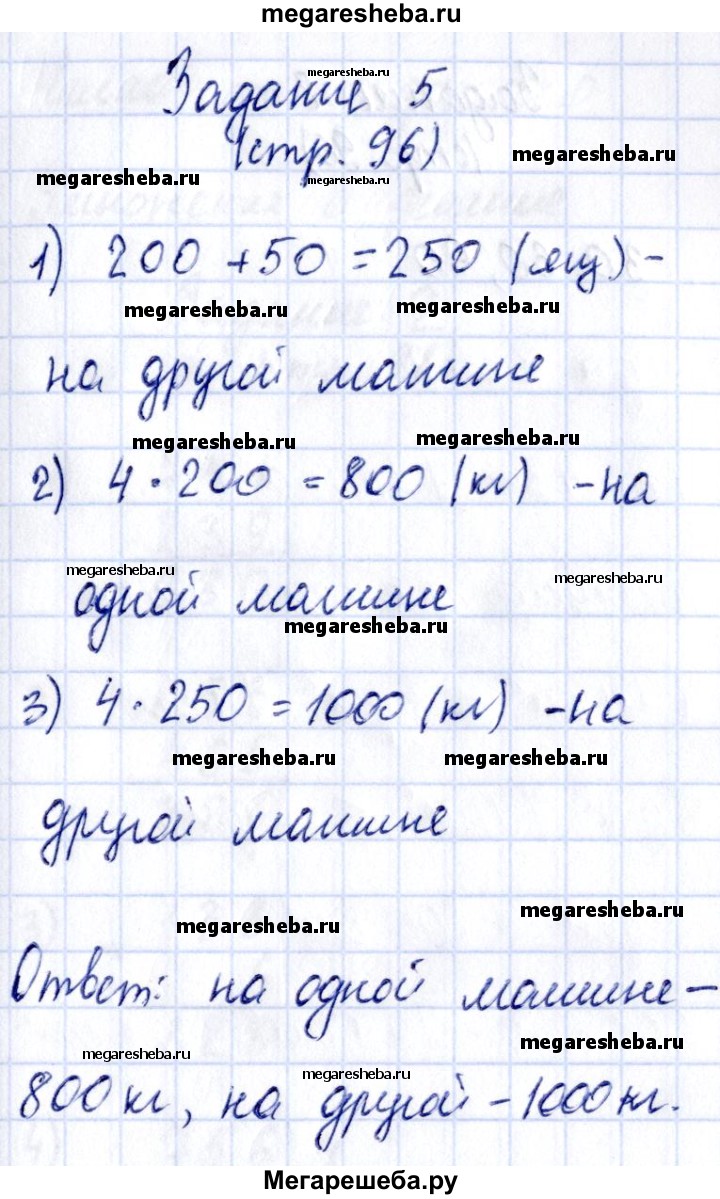 megaresheba.ru
Задание 5
megaresheba.ru
(стр. 96)
megaresheba.ru
megaresheba.ru
megaresheba.ru
1) 200 + 50 = 250 (ящ) -
megaresheba.ru
megaresheba.ru
на другой машине
megaresheba.ru
megaresheba.ru
2) 4 · 200 = 800 (кг) - на
megaresheba.ru
megaresheba.ru
одной машине
megaresheba.ru
3) 4 · 250 = 1000 (кг) - на
megaresheba.ru
megaresheba.ru
другой машине
megaresheba.ru
megaresheba.ru
Ответ: на одной машине -
megaresheba.ru
megaresheba.ru
megaresheba.ru
800 кг, на другой - 1000 кг.
Мегарешеба.ру